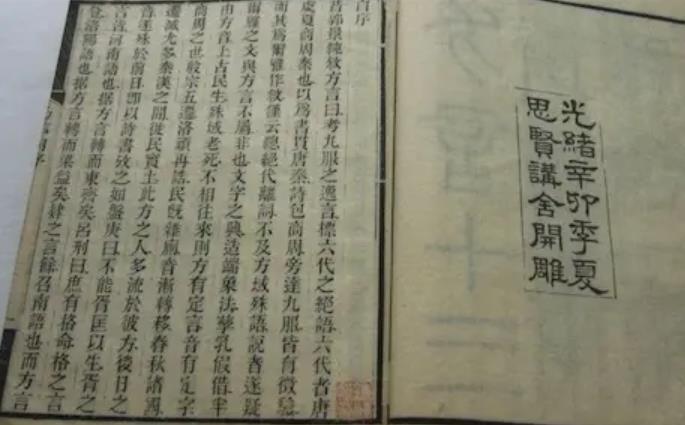 光緒辛卯季夏
思賢講舍開雕
自序
昔郭景純敘方言曰考九服之逸言標六代之絕語六代者唐
虞夏商周秦也以爲書貫唐秦詩包商周旁達九服皆有徵驗
而其爲爾雅作敘僅云總絕代離詞不及方域殊語說者遂疑
爾雅之文與方言不屬非也文字之興造端象法孳乳假借半
由方音上古民生殊域老死不相往來則方有定言音有定字
商周之世殷宗五遷洛頑再誥民旣雜廁音漸轉移春秋諸
遷滅尤多秦漢之間徙民實土此方之人多流於彼方後日之
音迷殊於前日卽以詩書攷之如盤庚曰不能胥匡以生胥之
言皆河南語也據方言轉而東齊矣呂刑曰庶有格命格之言
洛陽語也據方言轉而梁益矣肄之言餘召南語也而方言